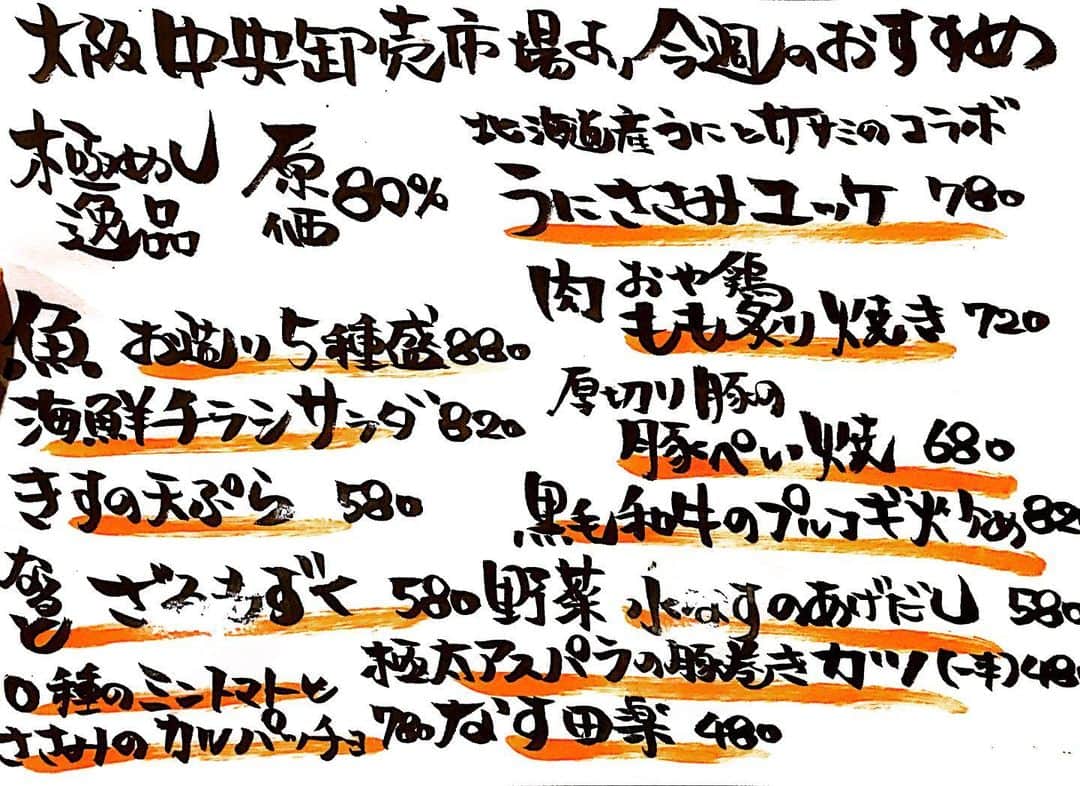 大阪中央卸売市場より今週のおすすめ
極めし逸品 原価80%
北海道産うにとササミのコラボ
うにささみユッケ 780
魚 お造り5種盛 880
海鮮チラシサラダ 820
きすの天ぷら 580
なると ざるもずく 580
0種のミニトマトと
ささみのカルパッチョ 780
肉 おや鶏
もも炙り焼き 720
厚切り豚の
豚ぺい焼 680
黒毛和牛のプルコギ炒め 820
野菜 水なすのあげだし 580
極太アスパラの豚巻きカツ(一本)480
なす田楽 480